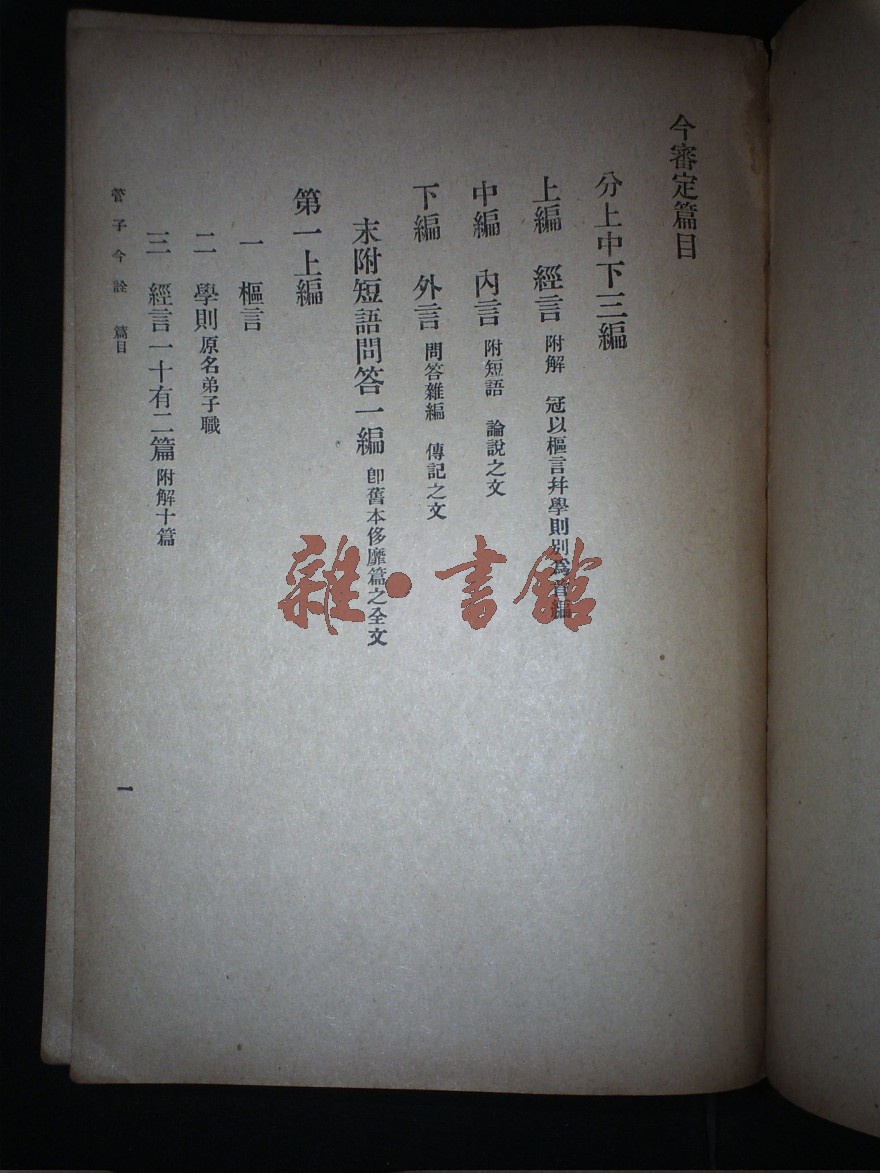 今審定篇目
分上中下三編
上編 經言 附解 冠以樞言幷學則別爲首編
中編 內言 附短語 論說之文
下編 外言 問答雜編 傳記之文
末附短語問答一編 卽舊本侈靡篇之全文
第一上編
一 樞言
二 學則 原名弟子職
三 經言一十有二篇 附解十篇
管子今詮 篇目
一
雜·書館